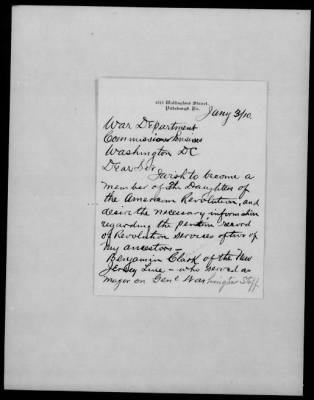 Wallingford Street,
Pittsburgh Pa.
Jany 3/10.
War Department
Commissioner Pensions
Washington DC
Dear Sir
I wish to become a
member of the Daughters of
the American Revolution, and
desire the necessary information
regarding the pension record
of Revolution services of two of
my ancestors—
Benjamin Clark of the New
Jersey Line - who served as
major on Genl Washington Staff.